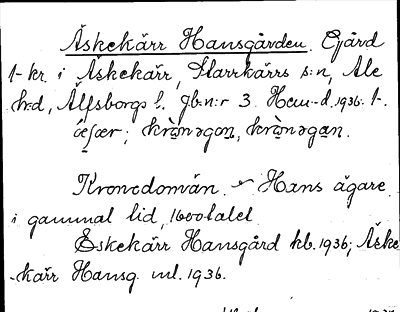 Äskekärr Hansgården. Gård
1-kr. i Äskekärr, Starrkärrs s:n, Ale
h:d, Älfsborgs l. Jb.n:r 3. Hem.-d. 1936. 1.
krònagan, krònagan.
Kronodomän. Hans ägare
i gammal tid, 1600talet
Eskekärr Hansgård kb. 1936; Äske
-kärr Hansg. ml. 1936.